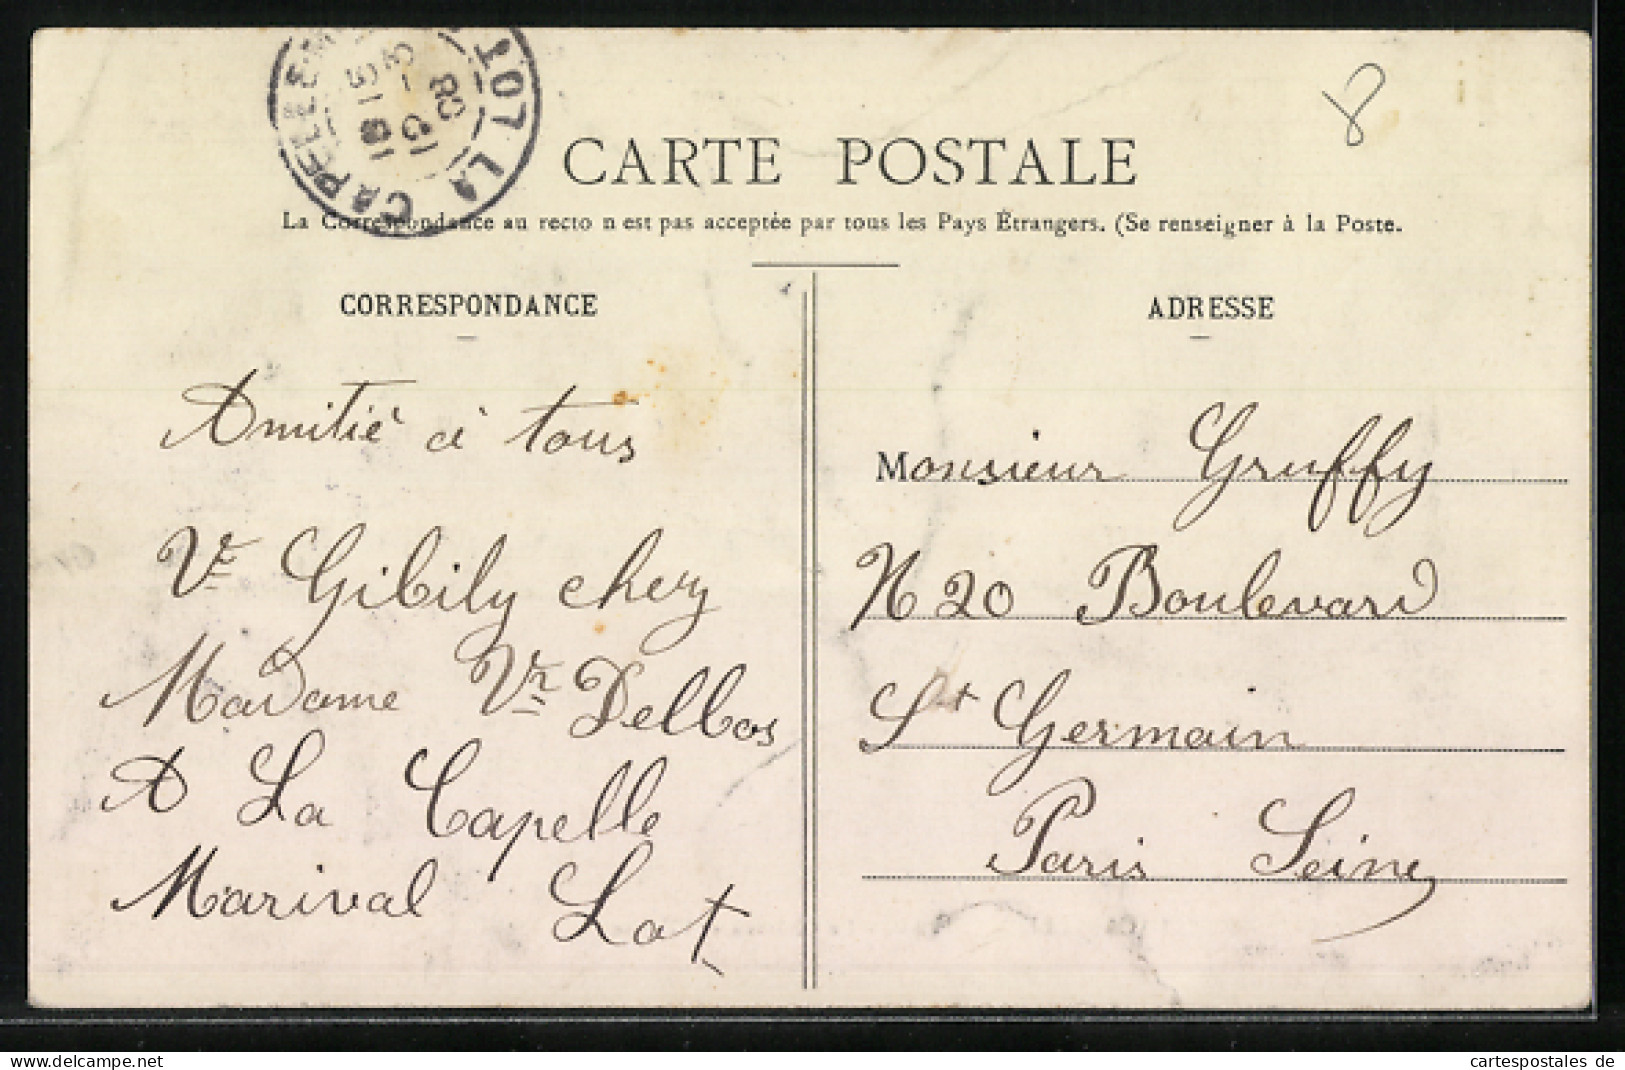 LOT LA CAPELLE M
CARTE POSTALE
La Correspondance au recto n est pas acceptée par tous les Pays Étrangers. (Se renseigner à la Poste.
CORRESPONDANCE
Amitié à tous
Vve Gibily chez
Madame Vve Delbos
A La Capelle
Marival Lot
ADRESSE
Monsieur Gruffy
N 20 Boulevard
St Germain
Paris Seine
8
www.cartespostales.de
cartespostales de